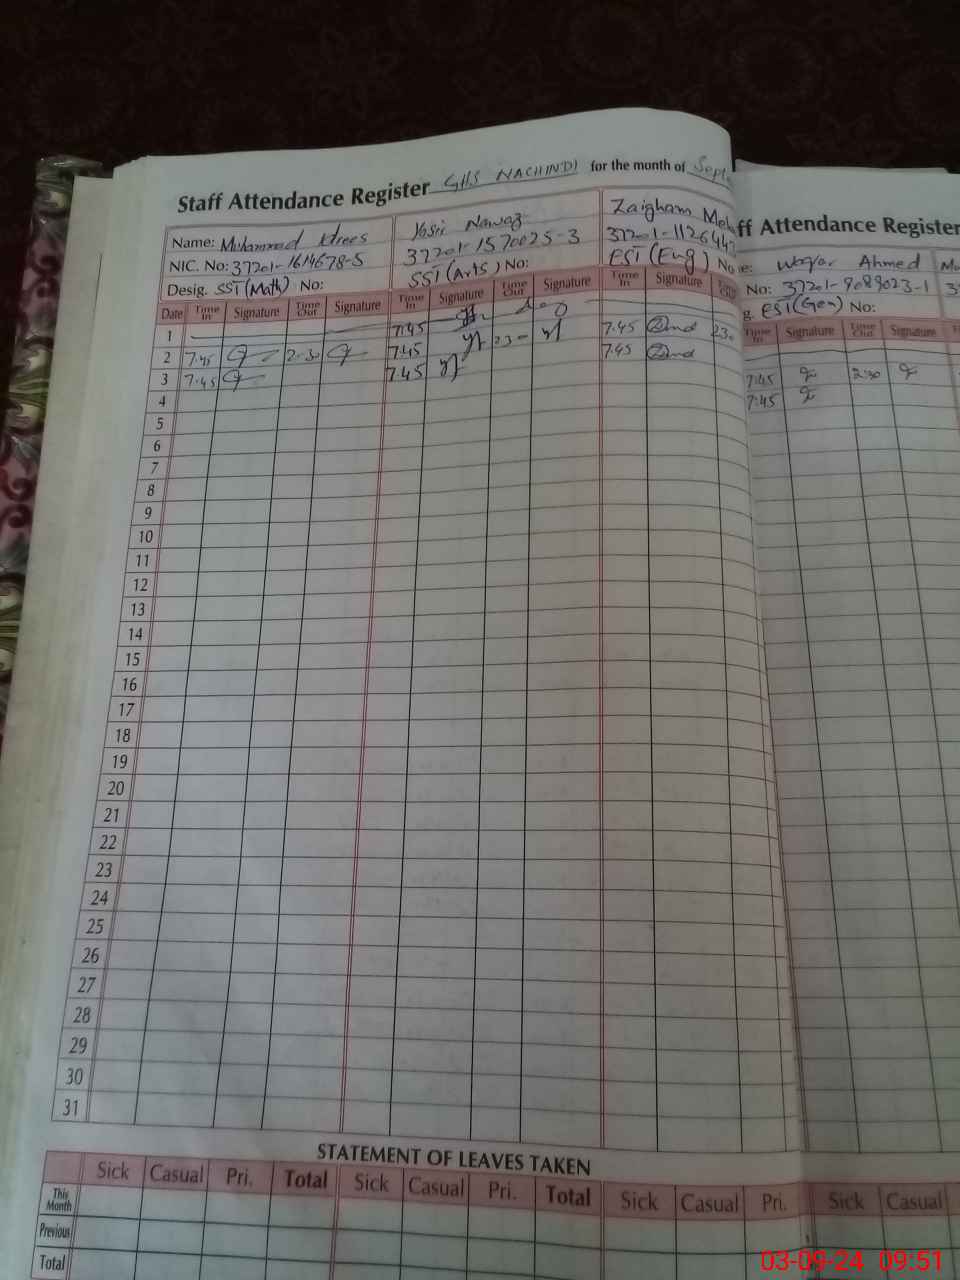 Staff Attendance Register GHS NACHINDI for the month of Septe
Name: Muhammad Idrees
NIC. No: 37201-1614678-5
Desig. SST (Math) No:
Yasir Nawaz
37201-1570025-3
SST (Arts) No:
Zaigham Meh
37201-112644
EST (Eng) No
ff Attendance Register
e: Waqar Ahmed Mu
No: 37201-9089023-1 3
g. EST (Gen) No:
Date Time In Signature Time Out Signature Time In Signature Time Out Signature Time In Signature Time In Signature Time Out Signature
1 7:45
2 7:45 2:30 7:45 2:30 7:45 2:30 7:45 2:30
3 7:45 7:45 7:45 7:45
4
5
6
7
8
9
10
11
12
13
14
15
16
17
18
19
20
21
22
23
24
25
26
27
28
29
30
31
STATEMENT OF LEAVES TAKEN
Sick Casual Pri. Total Sick Casual Pri. Total Sick Casual Pri. Sick Casual
This Month
Previous
Total
03-09-24 09:51